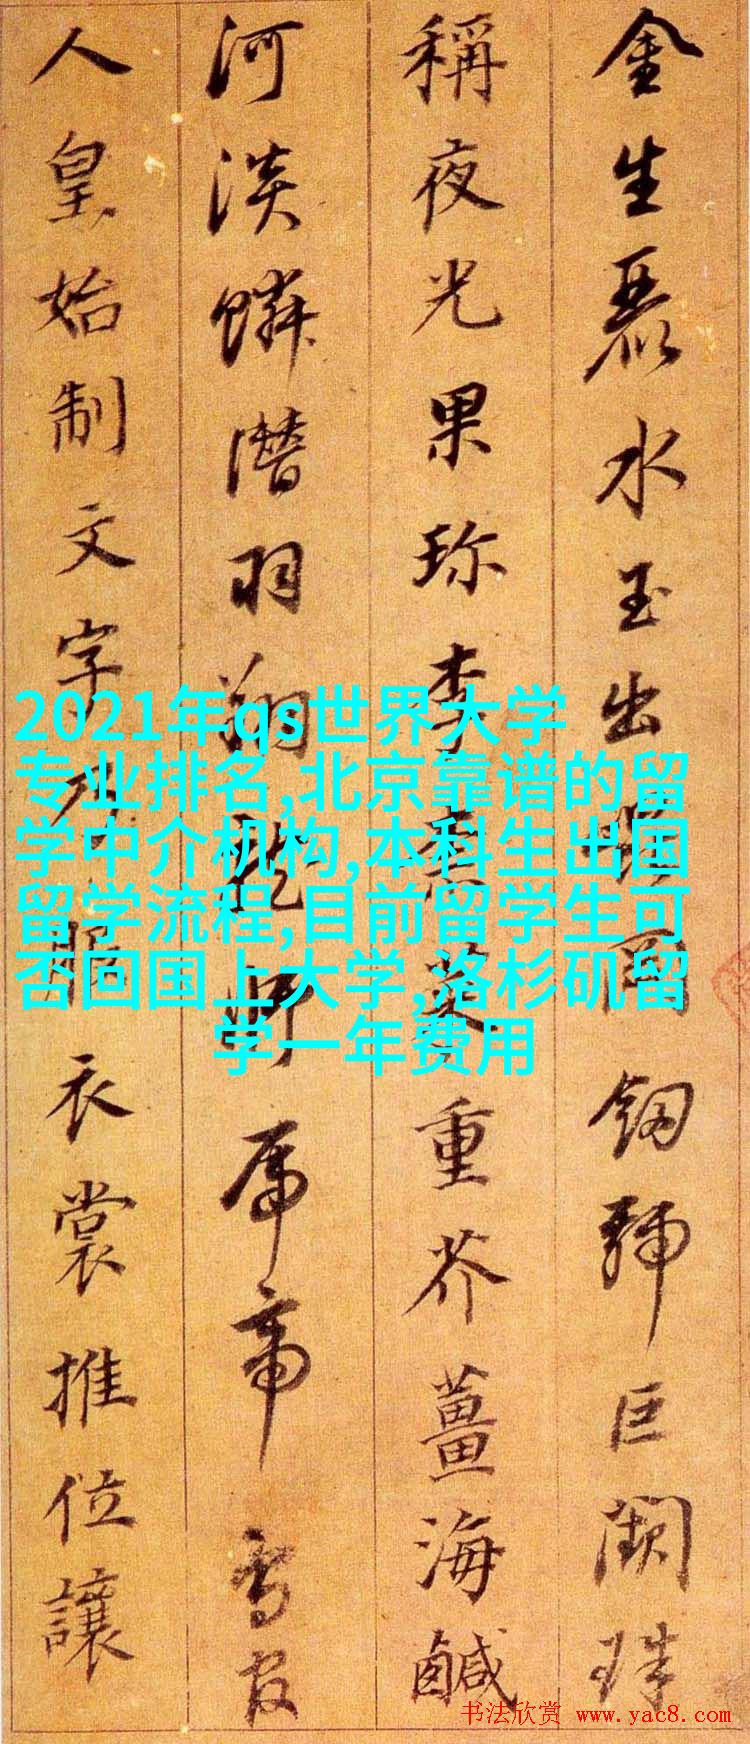 金生麗水玉出崐岡劒號巨闕珠
稱夜光果珎李柰菜重芥薑海鹹
河淡鱗潜羽翔龍師帝鳥官
人皇始制文字乃服衣裳推位讓
2021年qs世界大学
专业排名,北京靠谱的留
学中介机构,本科生出国
留学流程,目前留学生可
否回国上大学,洛杉矶留
学一年费用
书法欣赏 www.yac8.com